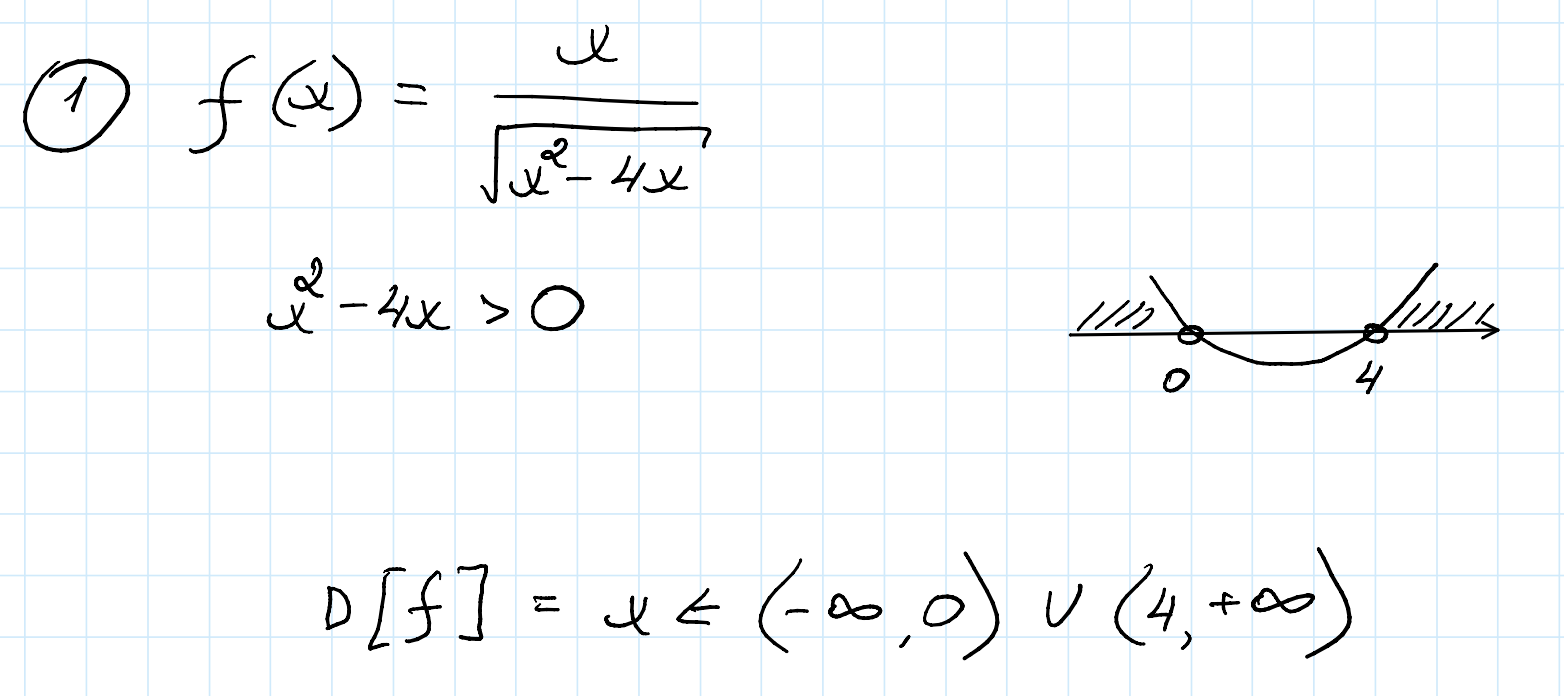 ① f(x) = x / √(x² - 4x)
x² - 4x > 0
0 4
D[f] = x ∈ (-∞, 0) ∪ (4, +∞)